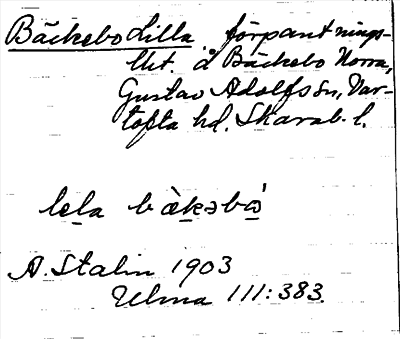 Bäckebo Lilla, förpantnings-
lht. å Bäckebo Norra,
Gustav Adolfs sn, Var-
tofta hd. Skarab. l.
lela bàkəbó
A. Stalin 1903
Ulma 111:383.